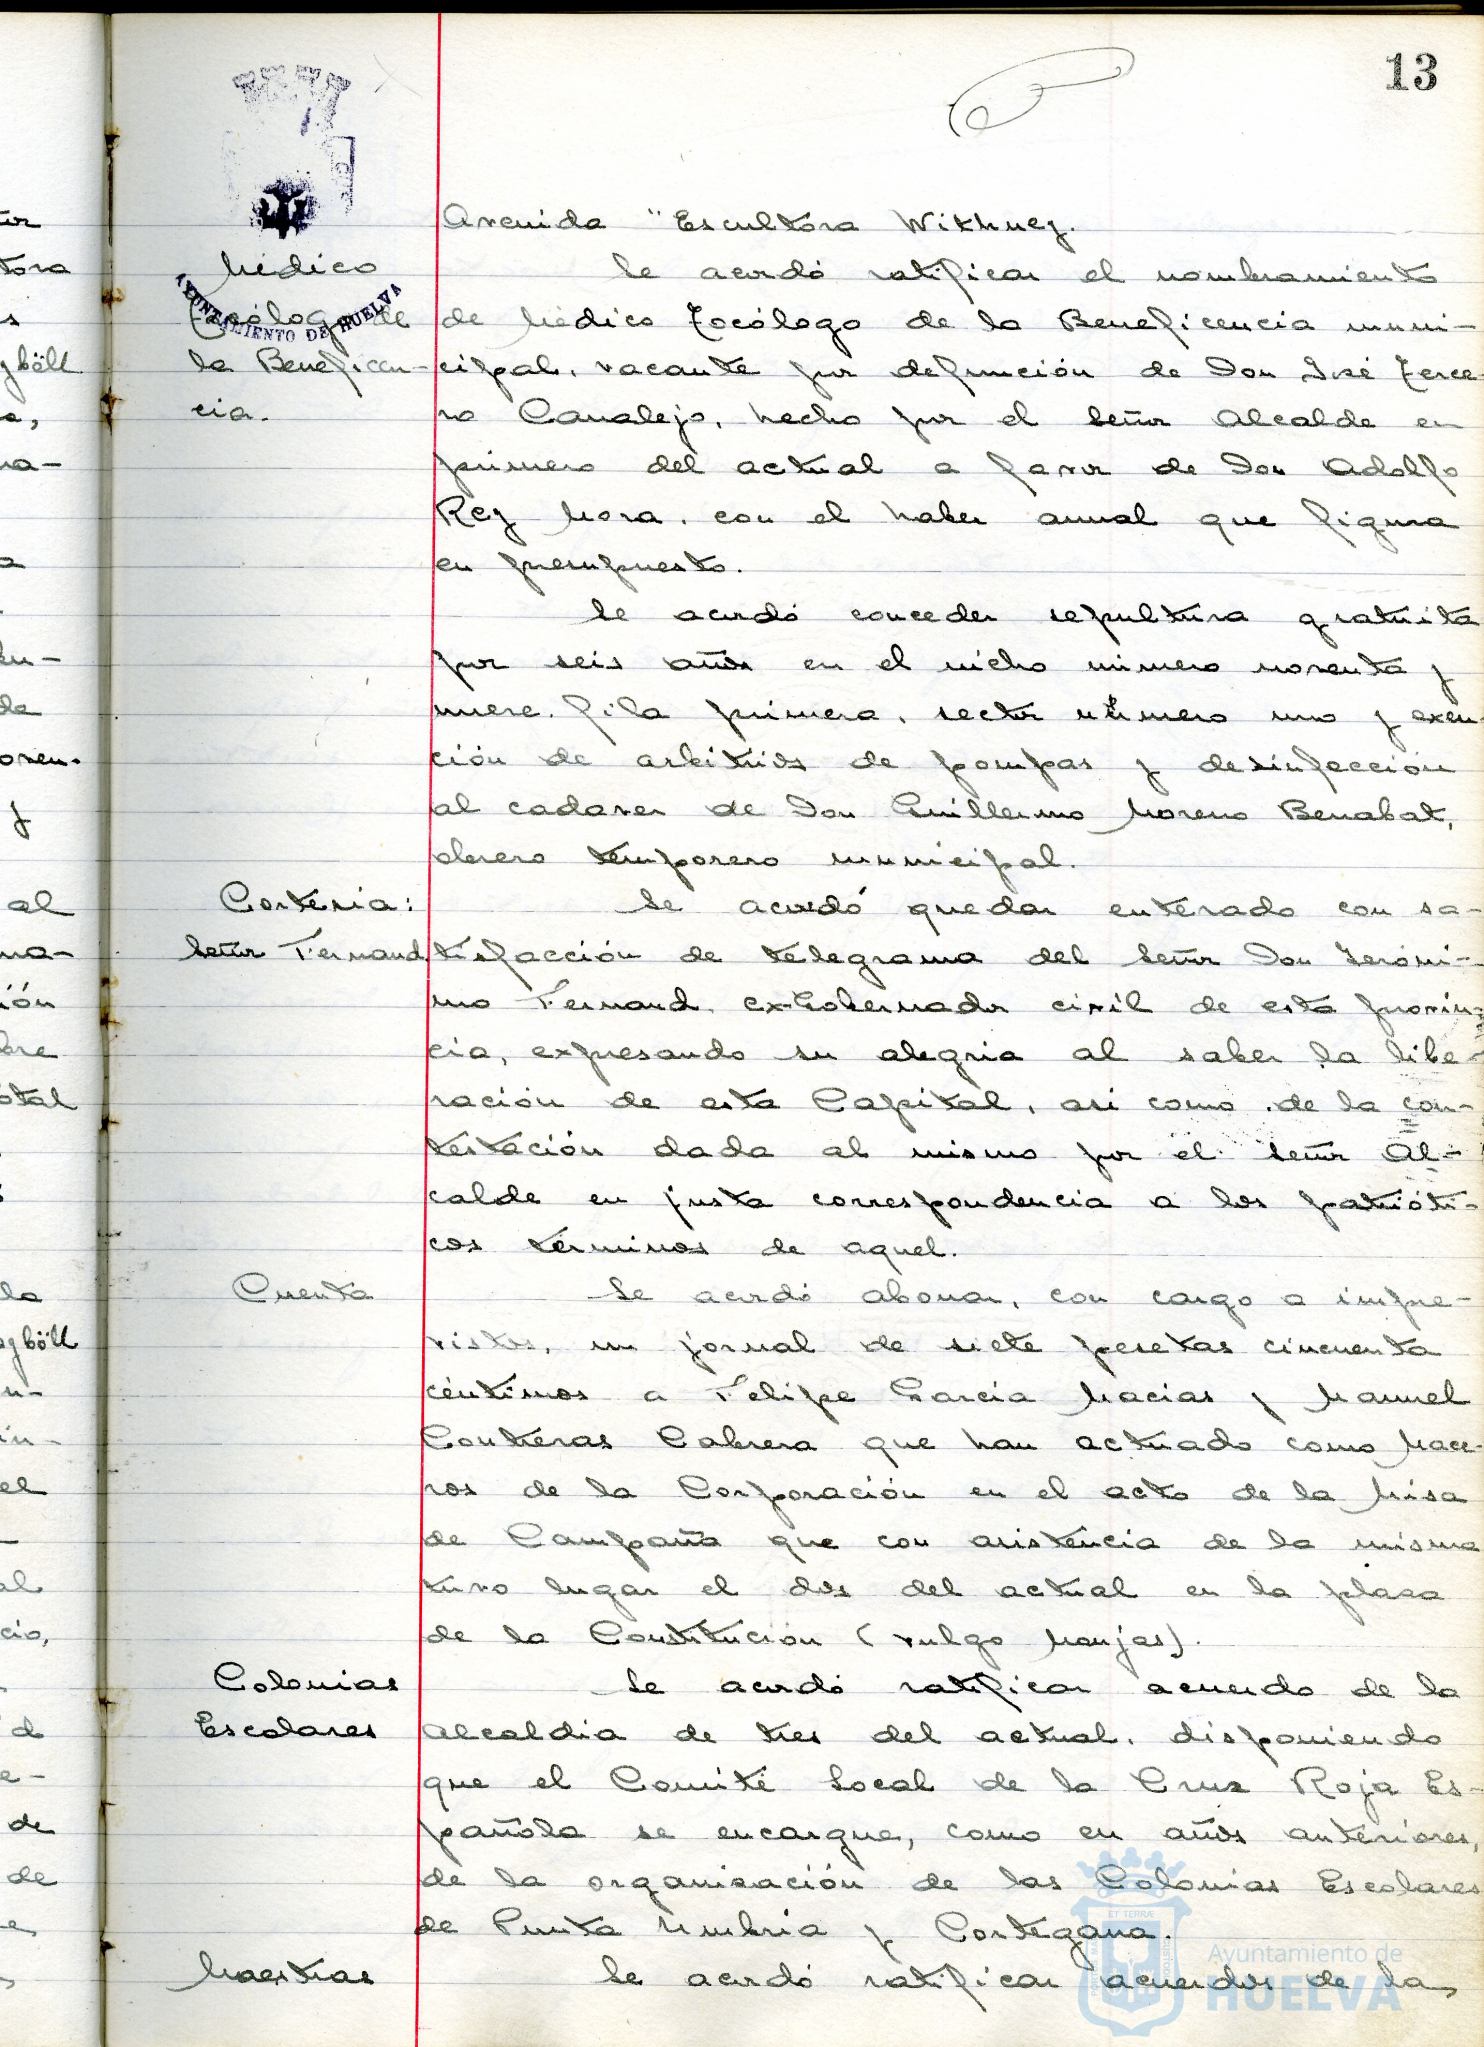 13
AYUNTAMIENTO DE HUELVA
Avenida "Escultora Withney.
Médico
Tocólogo de
la Beneficen-
cia.
Se acordó ratificar el nombramiento
de Médico Tocólogo de la Beneficencia muni-
cipal, vacante por defunción de Don José Terce-
ro Canalejo, hecho por el Señor Alcalde en
primero del actual a favor de Don Adolfo
Rey Mora, con el haber anual que figura
en presupuesto.
Se acordó conceder sepultura gratuita
por seis años en el nicho número noventa y
nueve, fila primera, sector número uno y exen-
ción de arbitrios de pompas y desinfección
al cadaver de Don Guillermo Moreno Benabat,
obrero temporero municipal.
Cortesia:
Señor Fernaud
Se acordó quedar enterado con sa-
tisfacción de telegrama del Señor Don Jeróni-
mo Fernaud, ex-Gobernador civil de esta provin-
cia, expresando su alegria al saber la libe-
ración de esta Capital, asi como de la con-
testación dada al mismo por el Señor Al-
calde en justa correspondencia a los patrióti-
cos términos de aquel.
Cuenta
Se acordó abonar, con cargo a impre-
vistos, un jornal de siete pesetas cincuenta
céntimos a Felipe Garcia Macias y Manuel
Contreras Cabrera que han actuado como Mace-
ros de la Corporación en el acto de la Misa
de Campaña que con asistencia de la misma
tuvo lugar el dos del actual en la plaza
de la Constitución (vulgo Monjas).
Colonias
Escolares
Se acordó ratificar acuerdo de la
Alcaldia de tres del actual, disponiendo
que el Comité Local de la Cruz Roja Es-
pañola se encargue, como en años anteriores,
de la organización de las Colonias Escolares
de Punta Umbria y Cortegana.
Maestras
Se acordó ratificar acuerdos de la
Ayuntamiento de
HUELVA